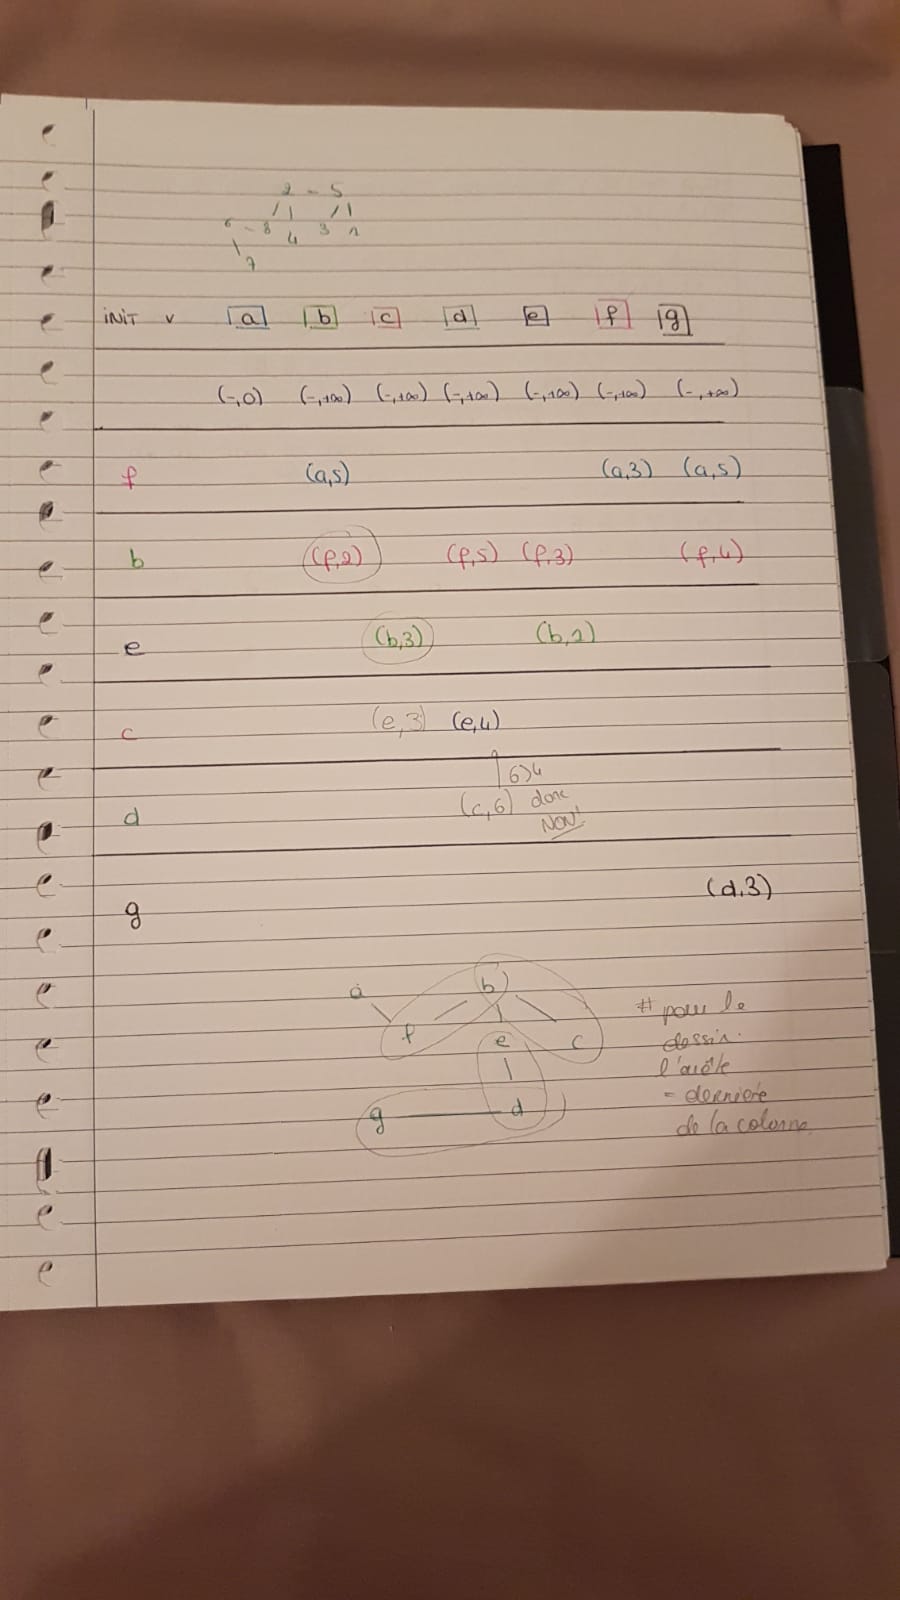 2 - 5
6 - 8 4 3 1
7
INIT v a b c d e f g
(-,0) (-,+∞) (-,+∞) (-,+∞) (-,+∞) (-,+∞) (-,+∞)
f (a,5) (a,3) (a,5)
b (f,2) (f,5) (f,3) (f,4)
e (b,3) (b,2)
c (e,3) (e,4)
6>4
d (c,6) donc
NON!
g (d,3)
a b
f e c
g d
# pour le
dessin
l'arête
= dernière
de la colonne